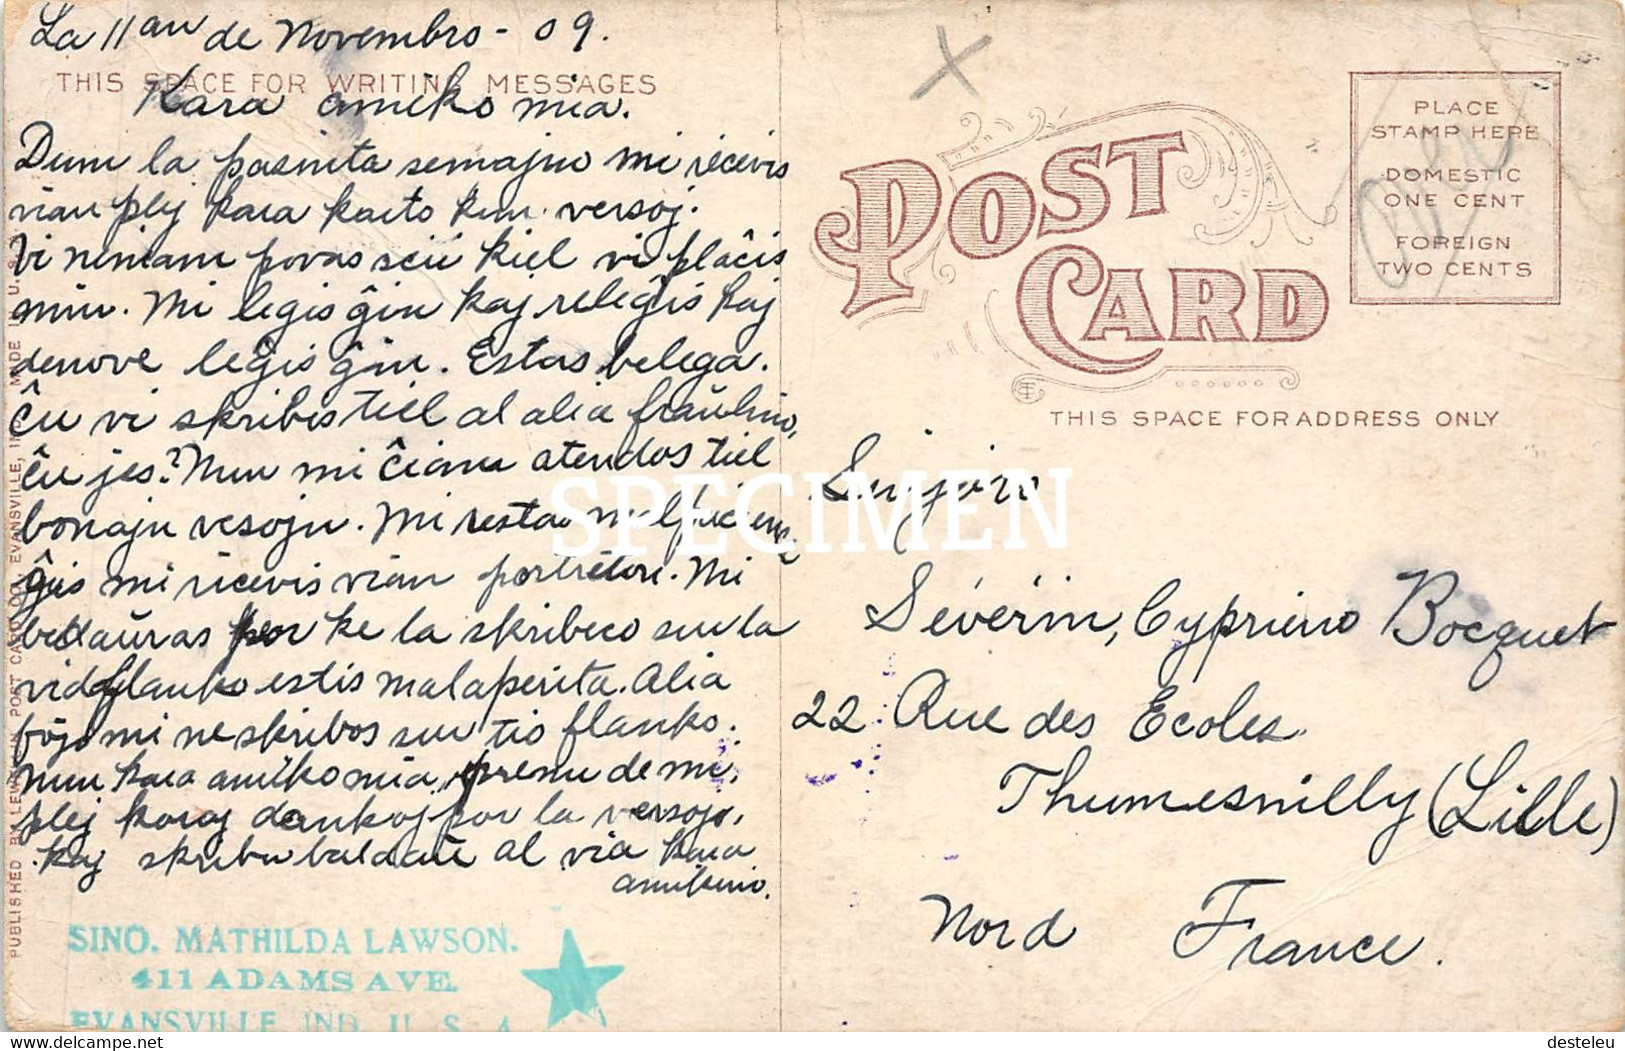 La 11an de Novembro - 09.
THIS SPACE FOR WRITING MESSAGES
Kara amiko mia.
Dum la pasinita semajno mi ricevis
vian plej kara karto kun versoj.
Vi neniam povas scii kiel vi plaĉis
min. Mi legis ĝin kaj releĝis kaj
denove leĝis ĝin. Estas belega.
Ĉu vi skribis tiel al alia fraŭlino,
ĉu jes? Nun mi ĉiam atendos tiel
bonajn vesojn. Mi restas
ĝis mi ricevis vian portreton. Mi
bedaŭras ke la skribeco sur la
vidaflanko estis malaperita. Alia
fojo mi ne skribos sur tio flanko.
Nun kara amiko mia, prenu de mi,
plej koraj dankoj por la versojo,
kaj skribu baldaŭ al via kara
amikino.
SINO. MATHILDA LAWSON.
411 ADAMS AVE.
EVANSVILLE, IND. U. S. A.
PUBLISHED BY LEWELLIN POST CARD CO., EVANSVILLE, IND. MADE IN U. S. A.
POST CARD
PLACE
STAMP HERE
DOMESTIC
ONE CENT
FOREIGN
TWO CENTS
THIS SPACE FOR ADDRESS ONLY
Sinjoro
Séverin, Cyprieno Bocquet
22 Rue des Ecoles
Thumesnilly (Lille)
Nord France.
SPECIMEN
www.delcampe.net
desteleu